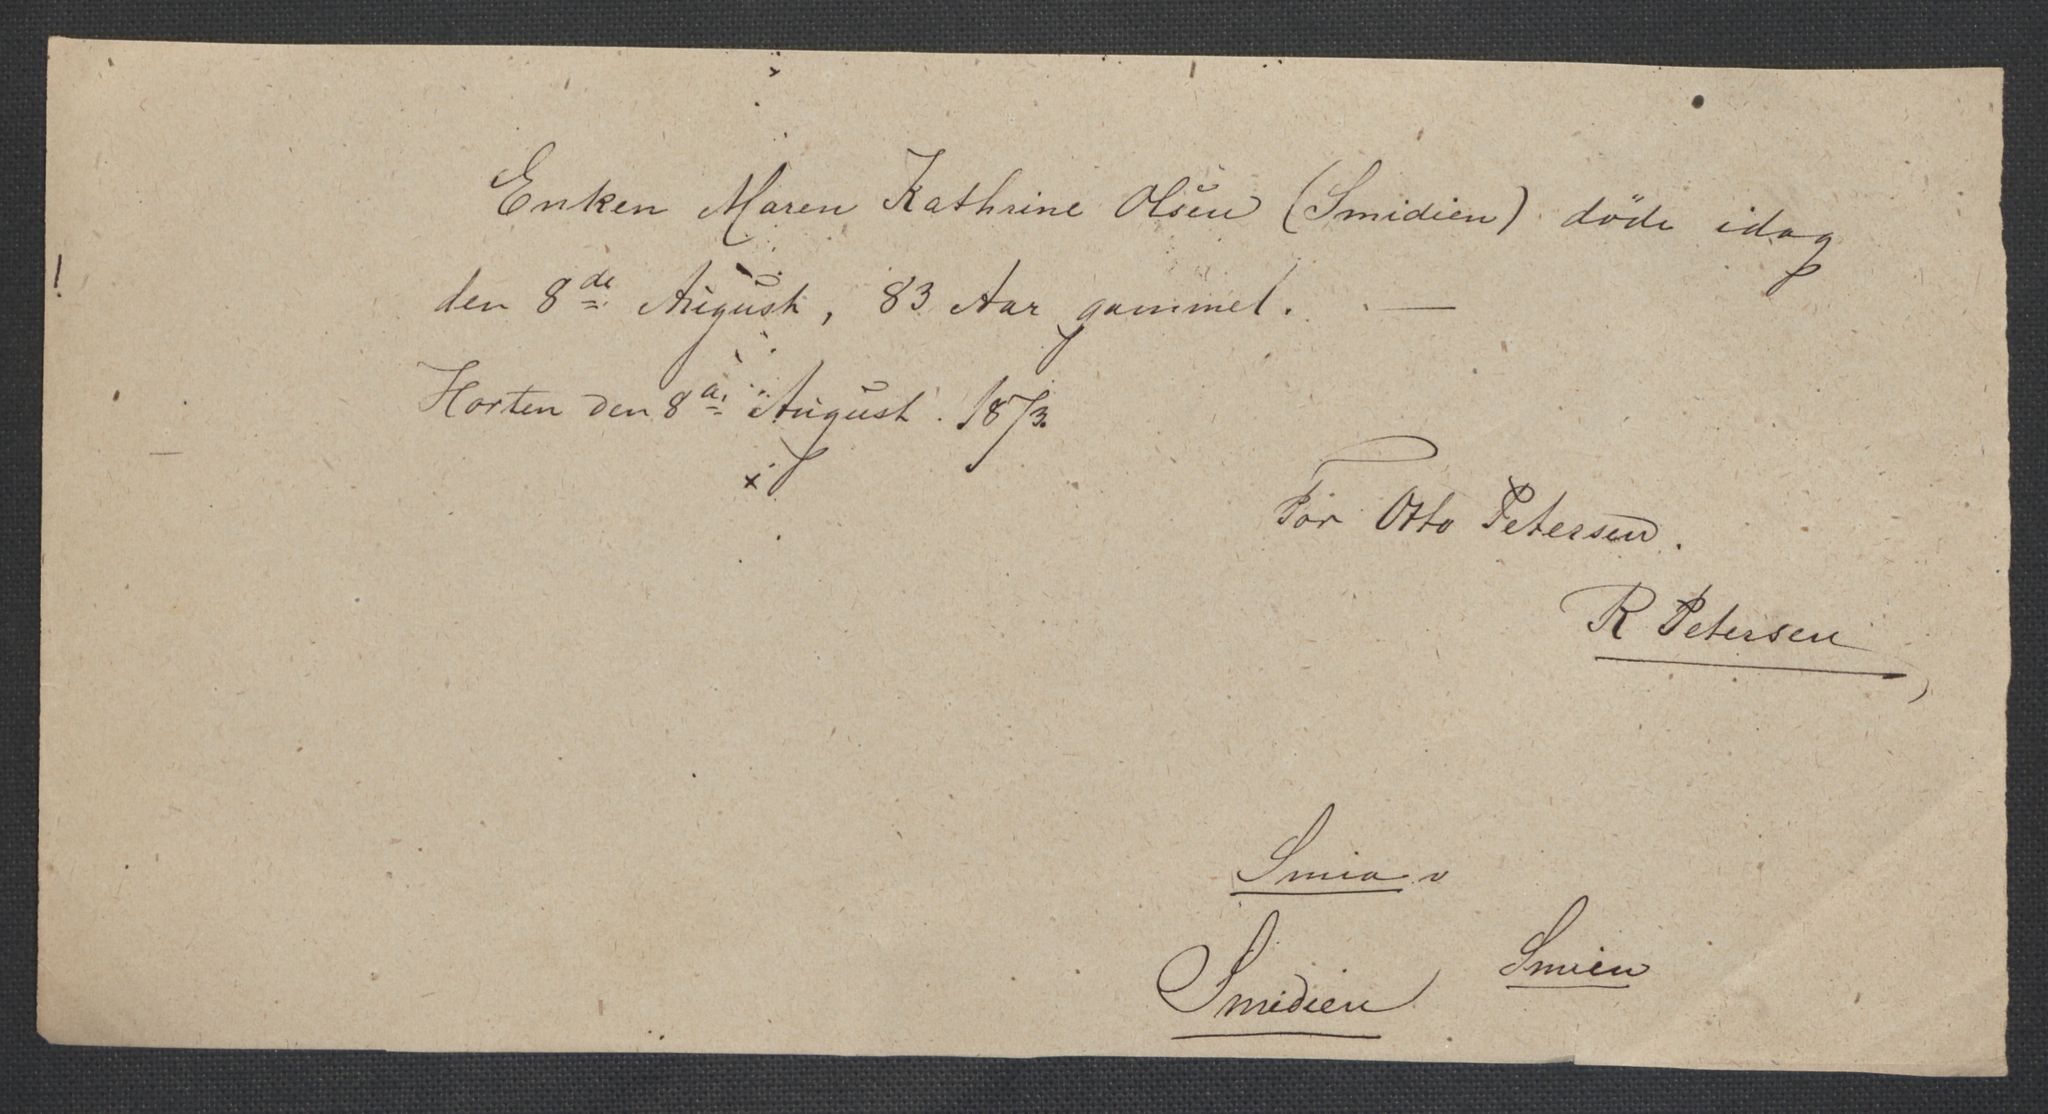 Enken Maren Kathrine Olsen (Smidien) döde idag
den 8de August, 83 Aar gammel. —
Horten den 8de August. 1873.
For Otto Petersen.
R Petersen
Smia
Smien
Smidien